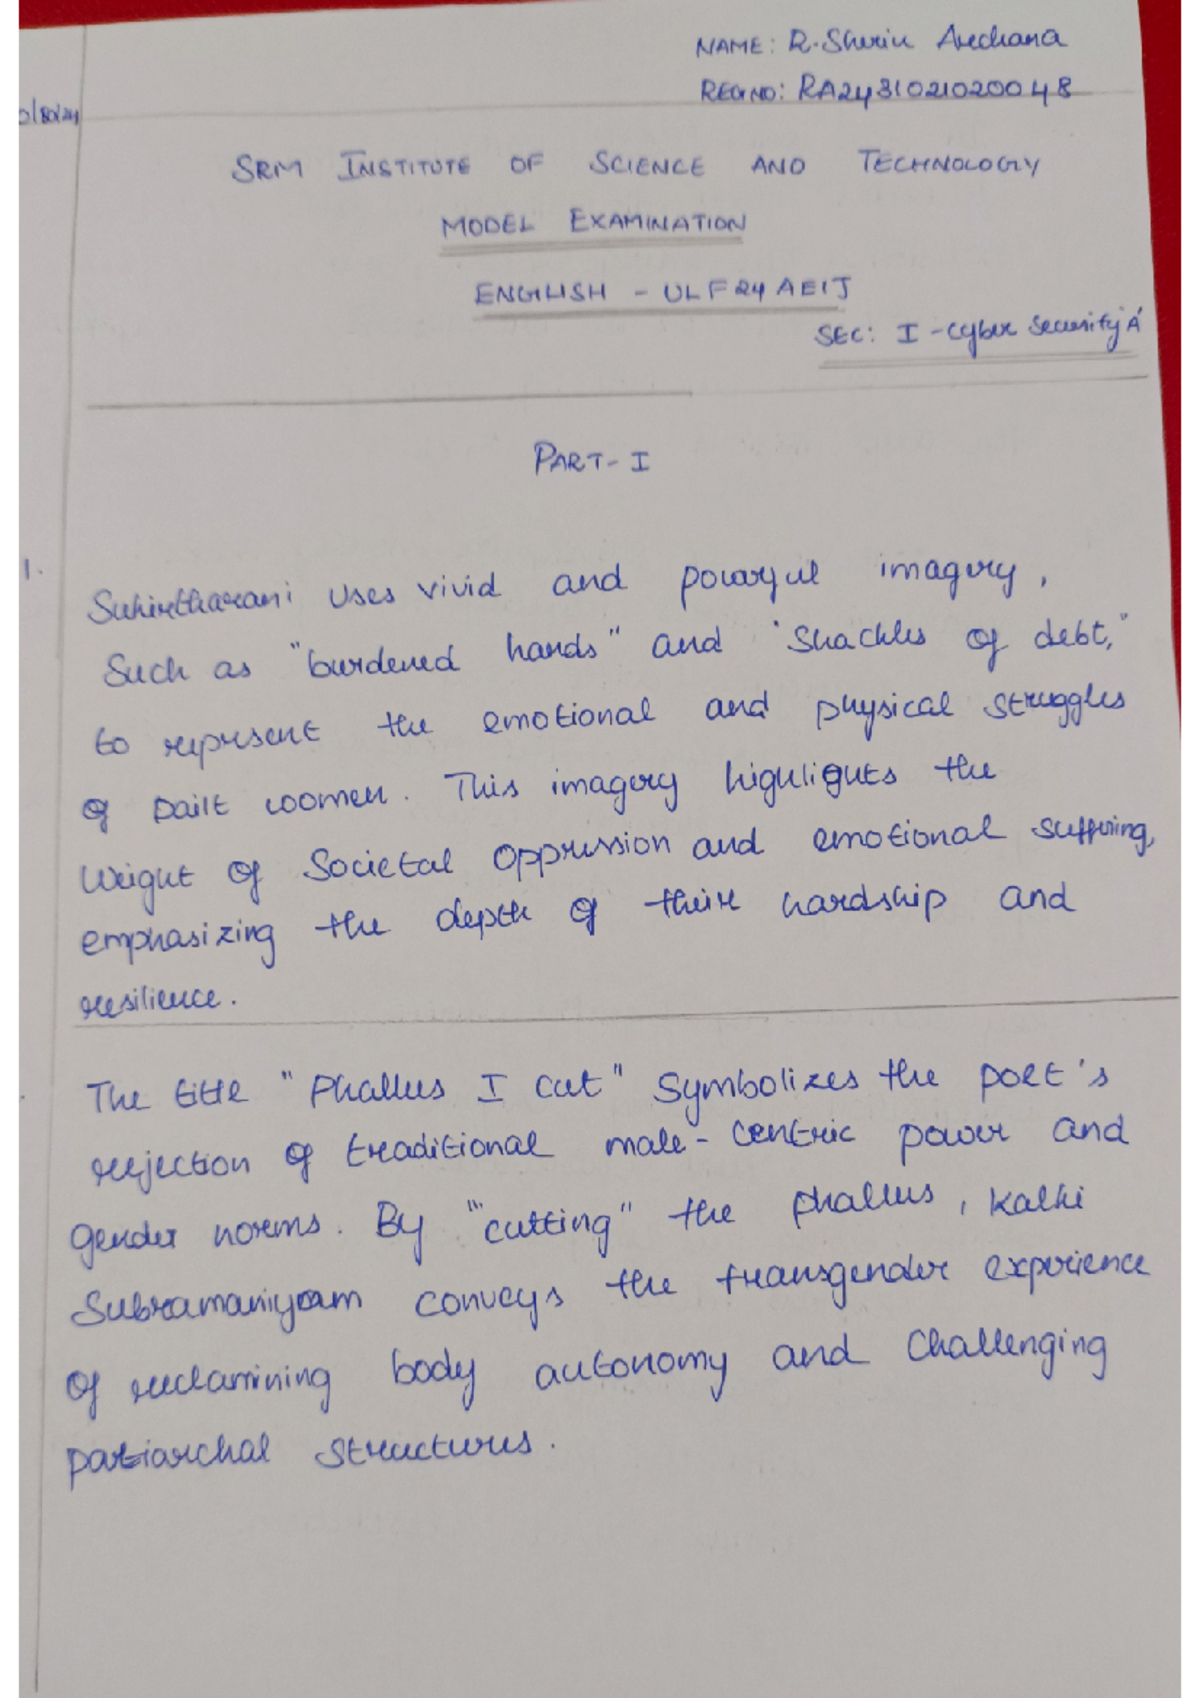 NAME: R. Sherin Archana
REG NO: RA2431021020048
SRM INSTITUTE OF SCIENCE AND TECHNOLOGY
MODEL EXAMINATION
ENGLISH - ULF24AE1J
SEC: I - Cyber Security 'A'
PART - I
1.
Sukirtharani uses vivid and powerful imagery,
Such as "burdened hands" and "Shackles of debt,"
to represent the emotional and physical struggles
of Dailt women. This imagery highlights the
Weight of Societal oppression and emotional suffering,
emphasizing the depth of their hardship and
resilience.
The title "Phallus I cut" Symbolizes the poet's
rejection of traditional male-centric power and
gender norms. By "cutting" the phallus, Kalki
Subramaniyam conveys the transgender experience
of reclamining body autonomy and Challenging
patriarchal structures.